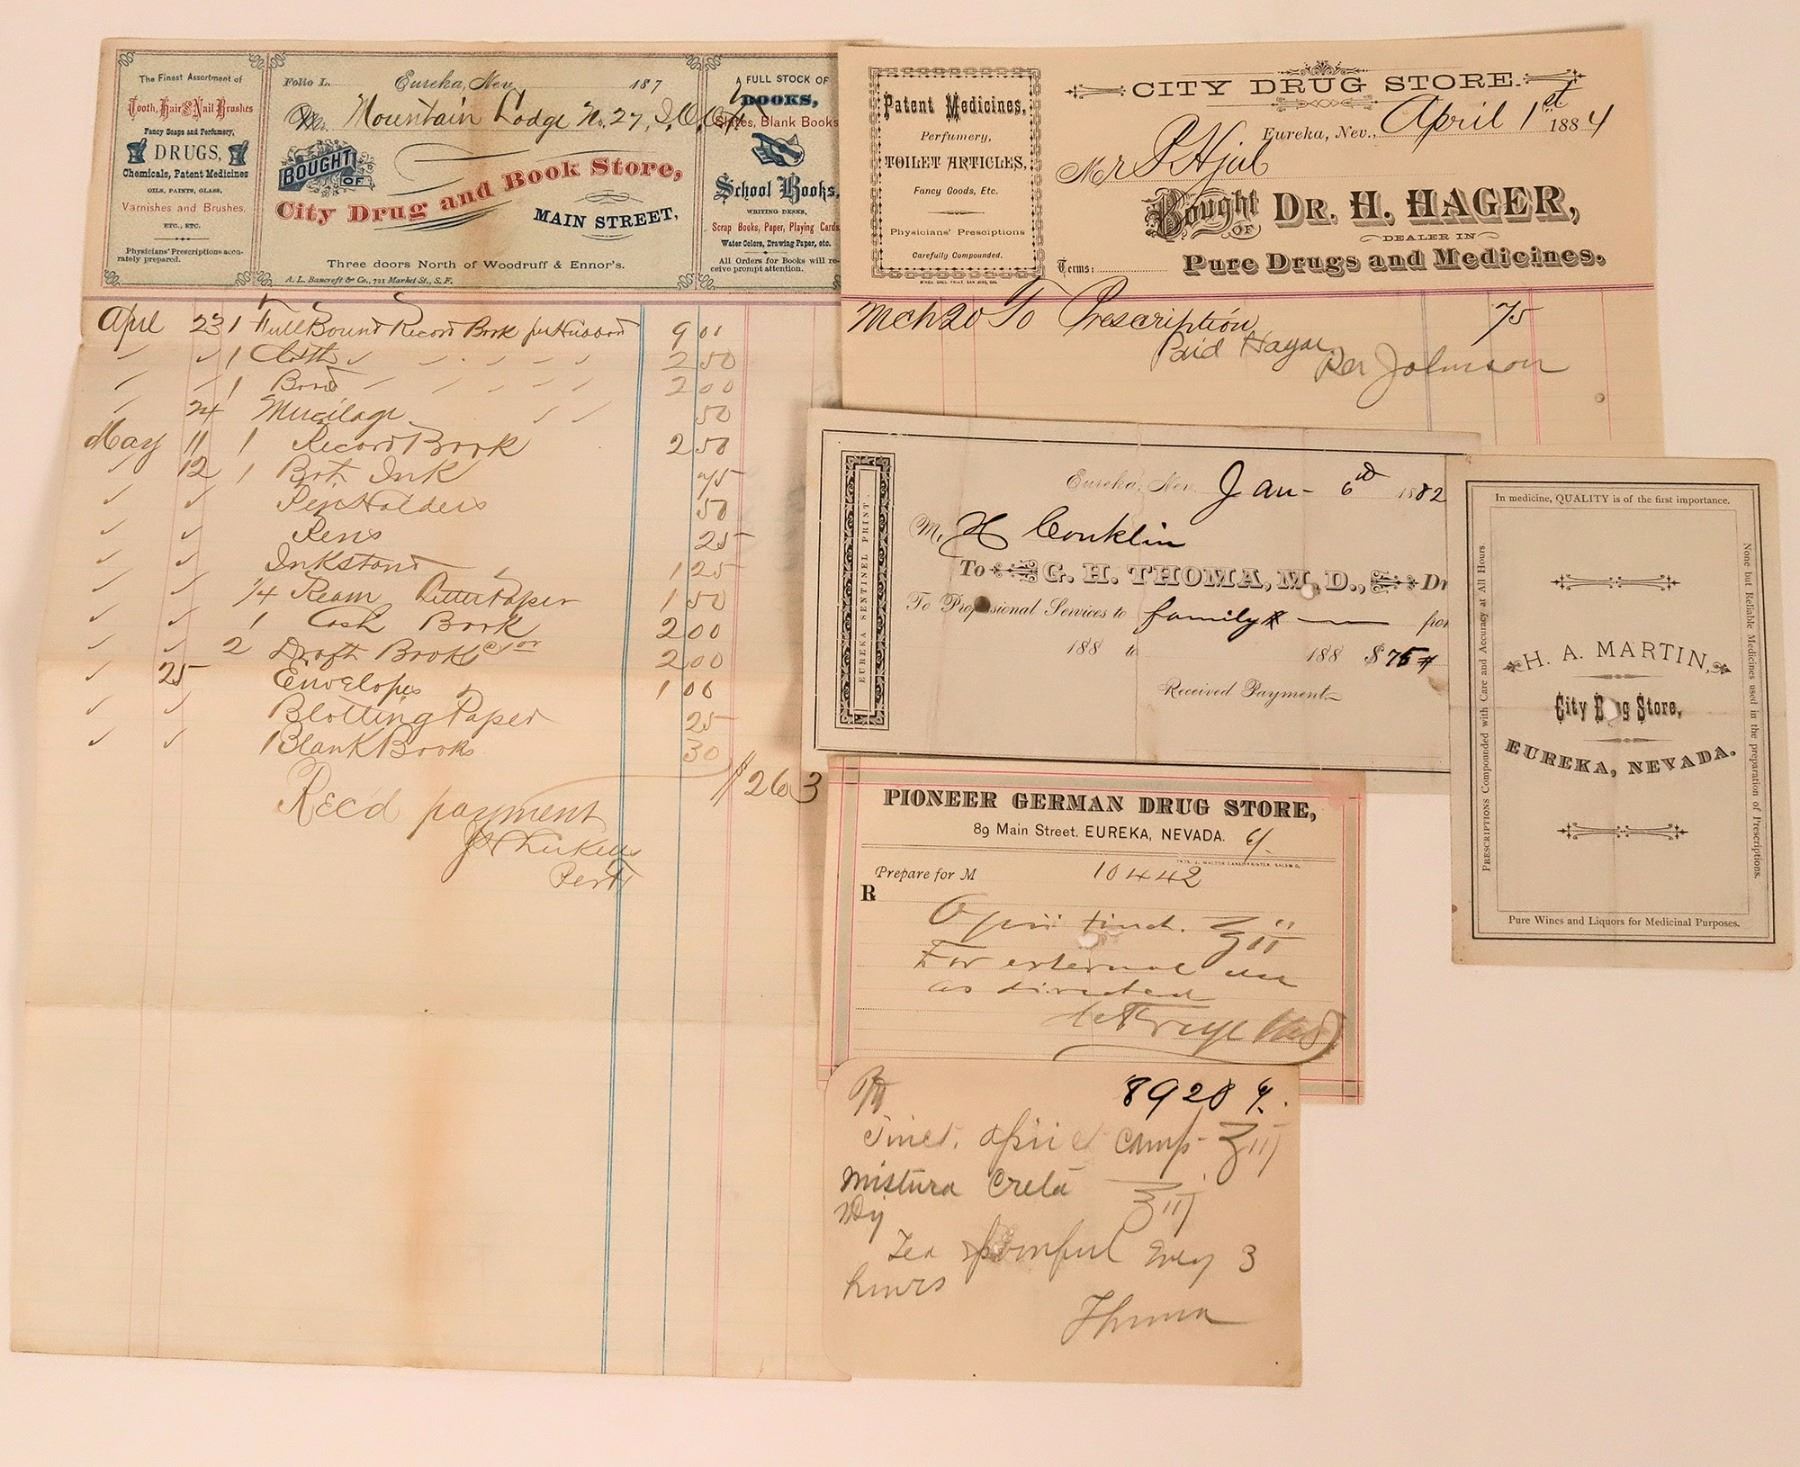 The Finest Assortment of
Tooth, Hair & Nail Brushes
Fancy Soaps and Perfumery,
DRUGS,
Chemicals, Patent Medicines
OILS, PAINTS, GLASS,
Varnishes and Brushes,
ETC., ETC.
Physicians' Prescriptions accu-
rately prepared.
Folio L. Eureka, Nev. 187
M Mountain Lodge No. 27, I.O.O.F.
BOUGHT OF
City Drug and Book Store,
MAIN STREET,
Three doors North of Woodruff & Ennor's.
A. L. Bancroft & Co., 721 Market St., S. F.
A FULL STOCK OF
BOOKS,
Slates, Blank Books
School Books,
WRITING DESKS,
Scrap Books, Paper, Playing Cards
Water Colors, Drawing Paper, etc.
All Orders for Books will re-
ceive prompt attention.
April 23 1 Full Bound Record Book for 9 00
" " 1 Cloth " " " " " 2 50
" " 1 Bord " " " " " 2 00
" 24 Mucilage " " 50
May 11 1 Record Book 2 50
" 12 1 Bot. Ink 75
" " Pen Holders 50
" " Pens 25
" " Inkstand 1 25
" " 1/4 Ream Letter Paper 1 50
" " 1 Cash Book 2 00
" " 2 Draft Books 2 00
" 25 Envelopes 1 00
" " Blotting Paper 25
" " 1 Blank Book 30
$263
Rec'd payment
Per
CITY DRUG STORE.
Patent Medicines,
Perfumery,
TOILET ARTICLES,
Fancy Goods, Etc.
Physicians' Presciptions
Carefully Compounded.
Eureka, Nev., April 1st 1884
Mr P Hjul
Bought OF DR. H. HAGER,
DEALER IN
Terms: Pure Drugs and Medicines.
Mch 20 To Prescription 75
Paid Hager
Per Johnson
EUREKA SENTINEL PRINT.
Eureka, Nev. Jan- 6th 1882
M. H Conklin
To G. H. THOMA, M. D., Dr
To Professional Services to family from
188 to 188 $75
Received Payment
In medicine, QUALITY is of the first importance.
PRESCRIPTIONS Compounded with Care and Accuracy at All Hours
None but Reliable Medicines used in the preparation of Prescriptions.
H. A. MARTIN,
City Drug Store,
EUREKA, NEVADA.
Pure Wines and Liquors for Medicinal Purposes.
PIONEER GERMAN DRUG STORE,
89 Main Street. EUREKA, NEVADA.
Prepare for M 10442
R
Opii tinct. ℥ii
For external use
as directed
8920
Tinct. opii et camp- ℥iij
Mistura Creta ℥iij
Tea spoonful Every 3
hours
Thoma